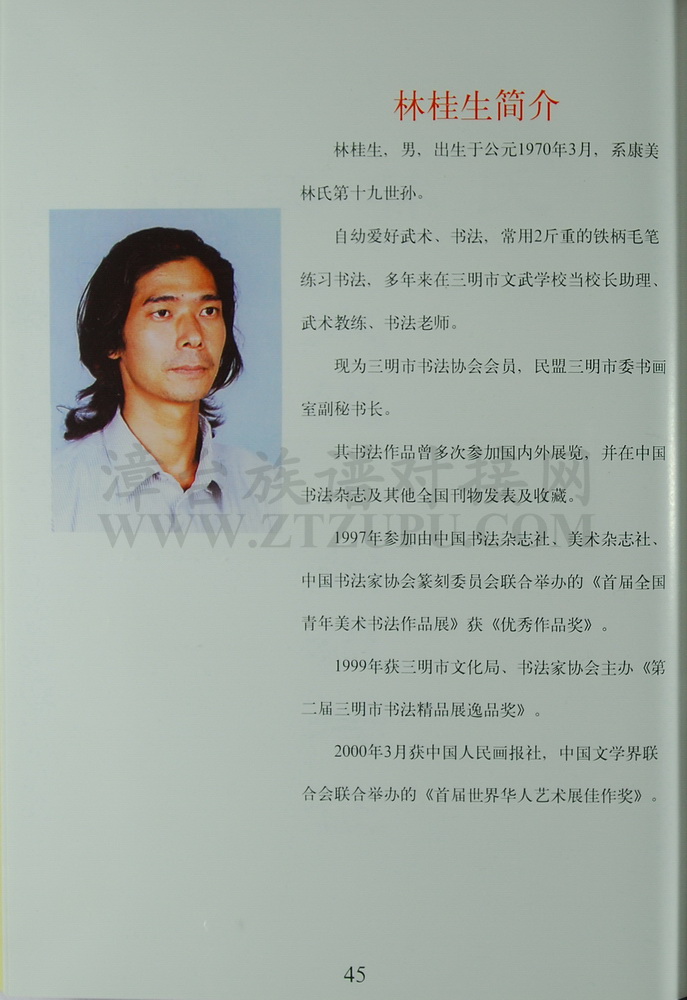 林桂生简介
林桂生，男，出生于公元1970年3月，系康美
林氏第十九世孙。
自幼爱好武术、书法，常用2斤重的铁柄毛笔
练习书法，多年来在三明市文武学校当校长助理、
武术教练、书法老师。
现为三明市书法协会会员，民盟三明市委书画
室副秘书长。
其书法作品曾多次参加国内外展览，并在中国
书法杂志及其他全国刊物发表及收藏。
漳台族谱对接网
WWW.ZTZUPU.COM
1997年参加由中国书法杂志社、美术杂志社、
中国书法家协会篆刻委员会联合举办的《首届全国
青年美术书法作品展》获《优秀作品奖》。
1999年获三明市文化局、书法家协会主办《第
二届三明市书法精品展逸品奖》。
2000年3月获中国人民画报社，中国文学界联
合会联合举办的《首届世界华人艺术展佳作奖》。
45